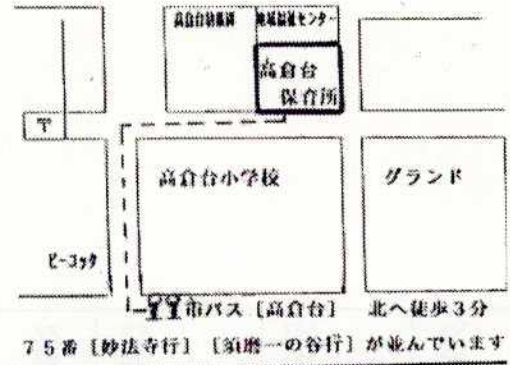 高倉台幼稚園
地域福祉センター
高倉台
保育所
〒
高倉台小学校
グランド
ピーコック
市バス［高倉台］ 北へ徒歩3分
75番［妙法寺行］［須磨一の谷行］が並んでいます